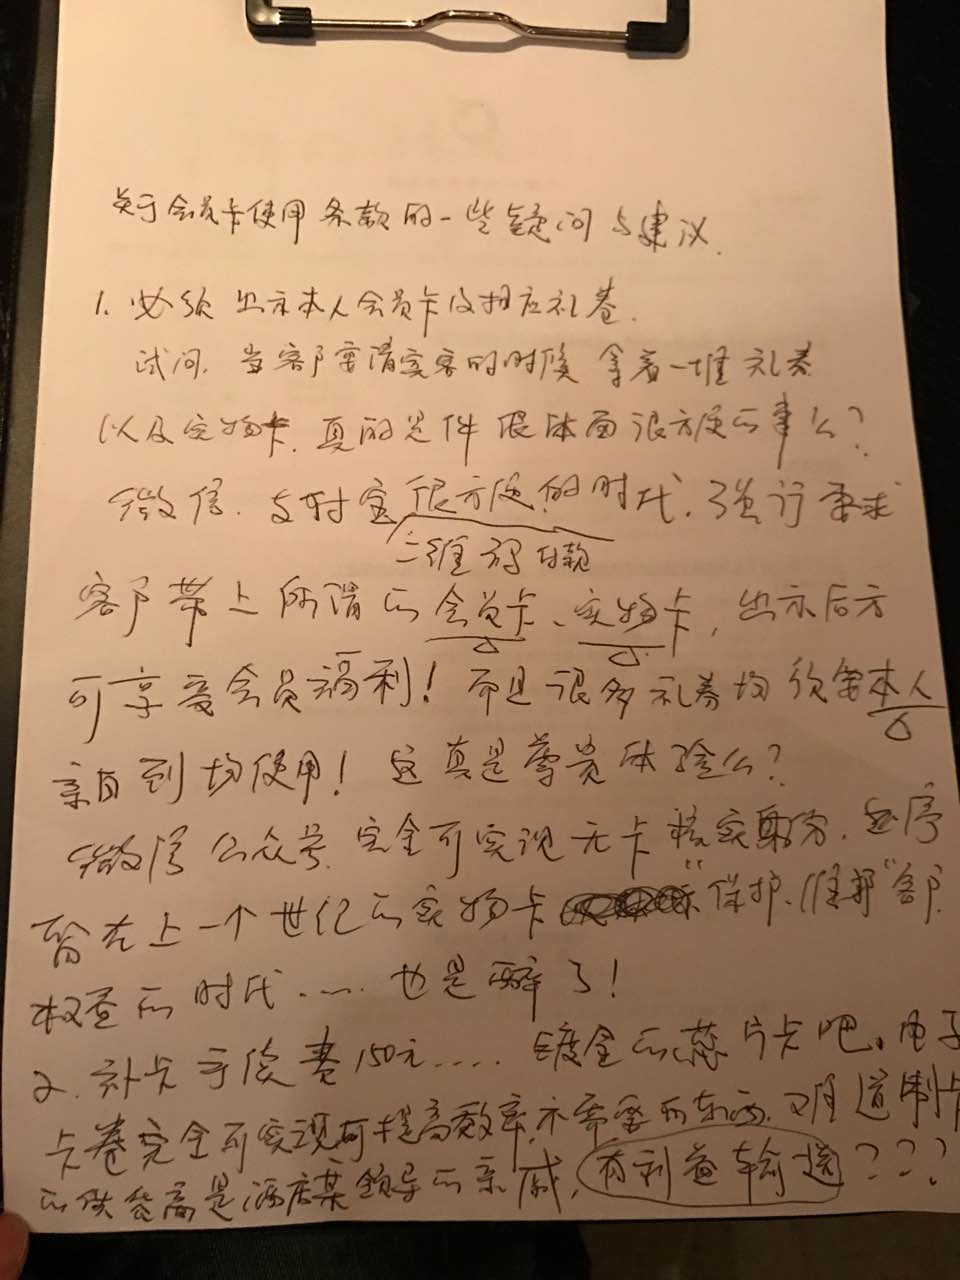 关于会员卡使用条款的一些疑问与建议.
1. 必须出示本人会员卡及相应礼卷.
试问. 当客户宴请宾客的时候 拿着一堆礼券
以及实物卡. 真的是件很体面很方便的事么?
微信. 支付宝很方便的时代. 强行要求
二维码付款
客户带上所谓的会员卡、实物卡, 出示后方
可享受会员福利! 而且很多礼券均须由本人
亲自到场使用! 这真是尊贵体验么?
微信公众号. 完全可实现无卡核实身份. 还停
留在上一个世纪的实物卡 "保护、维护"客户
权益的时代...... 也是醉了!
2. 补卡手续费150元...... 镀金的芯片卡吧. 电子
卡卷完全可实现可提高效率. 不需要的东西. 难道制卡
的供货商是酒店某领导的亲戚, 有利益输送???